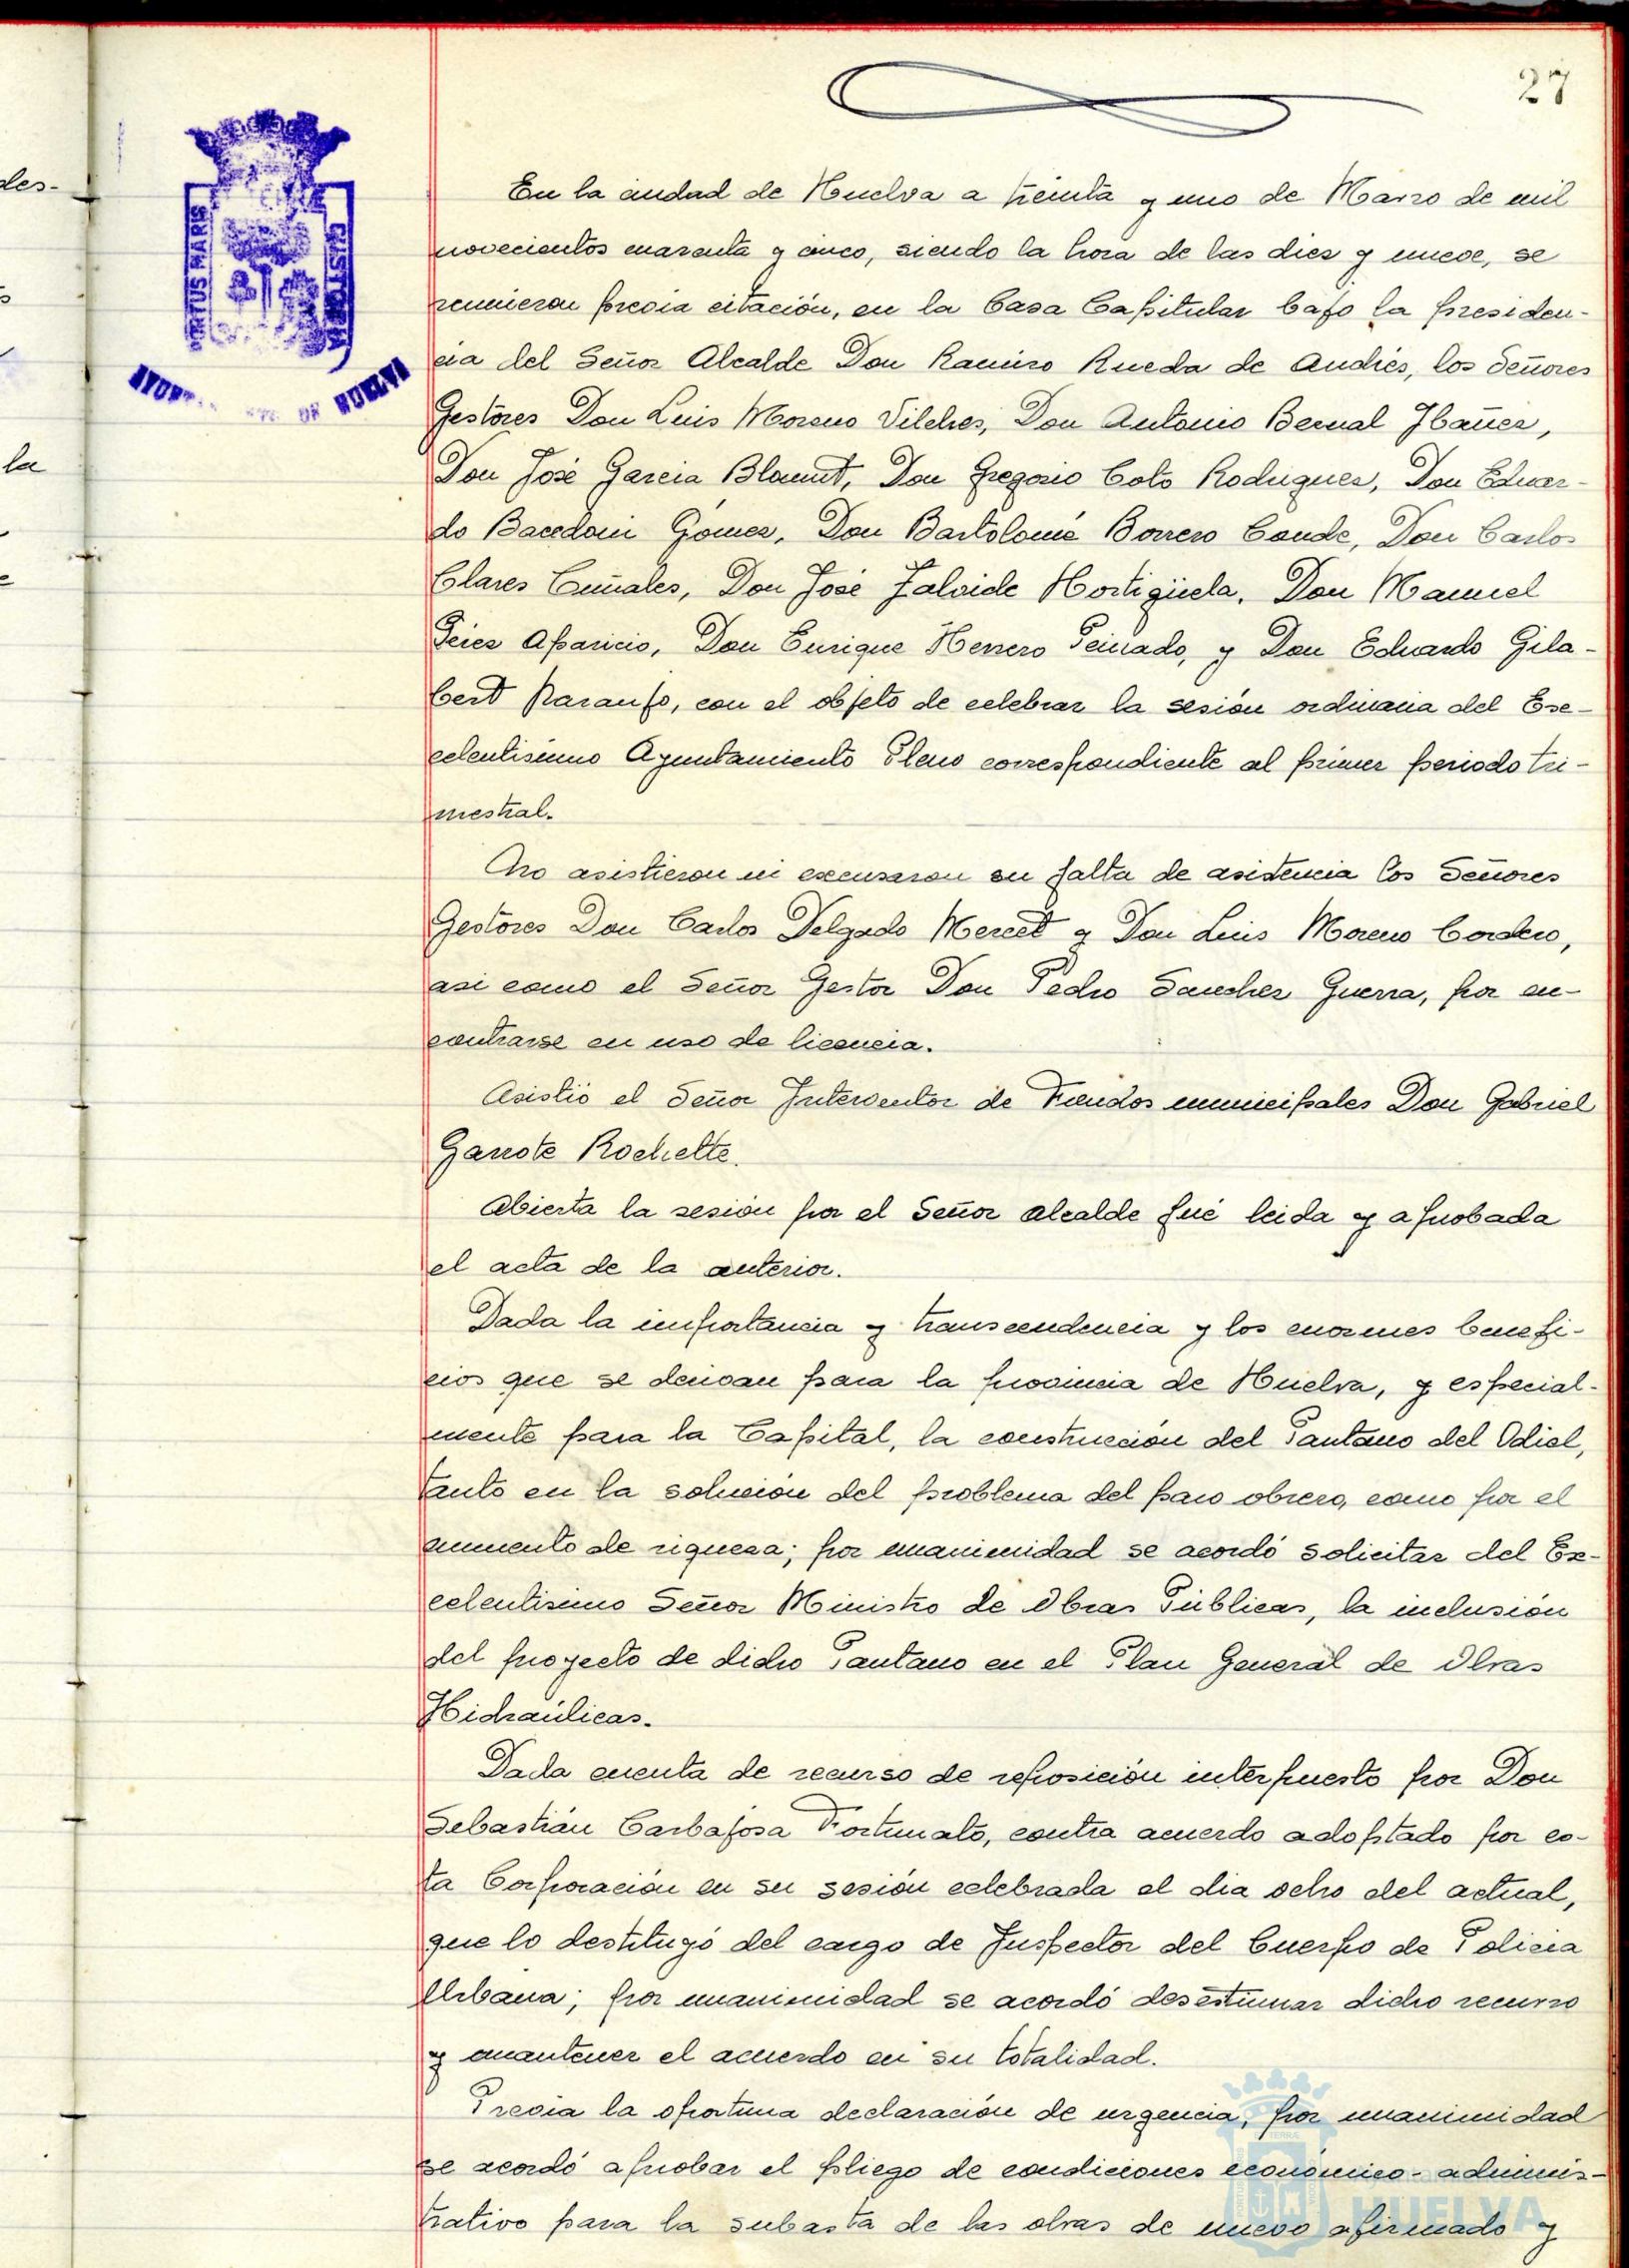 27
des-
la
PORTUS MARIS
CUSTODIA
AYUN
DE HUELVA
En la ciudad de Huelva a treinta y uno de Marzo de mil
novecientos cuarenta y cinco, siendo la hora de las diez y nueve, se
reunieron previa citación, en la Casa Capitular bajo la presiden-
cia del Señor Alcalde Don Ramiro Rueda de Andrés, los Señores
Gestores Don Luis Moreno Vilches, Don Antonio Bernal Ibañez,
Don José Garcia Don Gregorio Coto Rodriguez, Don Eduar-
do Gómez, Don Bartolomé Borrero Conde, Don Carlos
Clares Don José Hortigüela, Don Manuel
Aparicio, Don Enrique Herrero Peinado, y Don Eduardo Gila-
bert Naranjo, con el objeto de celebrar la sesión ordinaria del Exc-
celentisimo Ayuntamiento Pleno correspondiente al primer periodo tri-
mestral.
No asistieron ni excusaron su falta de asistencia los Señores
Gestores Don Carlos Delgado Mercet y Don Luis Moreno Cordero,
asi como el Señor Gestor Don Pedro Sanchez Guerra, por en-
contrarse en uso de licencia.
Asistió el Señor Interventor de Fondos municipales Don Gabriel
Garrote Rochette.
Abierta la sesión por el Señor Alcalde fué leida y aprobada
el acta de la anterior.
Dada la importancia y transcendencia y los enormes benefi-
cios que se derivan para la provincia de Huelva, y especial-
mente para la Capital, la construcción del Pantano del Odiel,
tanto en la solución del problema del paro obrero, como por el
aumento de riqueza; por unanimidad se acordó solicitar del Ex-
celentisimo Señor Ministro de Obras Públicas, la inclusión
del proyecto de dicho Pantano en el Plan General de Obras
Hidraúlicas.
Dada cuenta de recurso de reposición interpuesto por Don
Sebastián Carbajosa Fortunato, contra acuerdo adoptado por es-
ta Corporación en su sesión celebrada el dia ocho del actual,
que lo destituyó del cargo de Inspector del Cuerpo de Policia
Urbana; por unanimidad se acordó desestimar dicho recurso
y mantener el acuerdo en su totalidad.
Previa la oportuna declaración de urgencia, por unanimidad
se acordó aprobar el pliego de condiciones económico-adminis-
trativo para la subasta de las obras de nuevo afirmado y
HUELVA